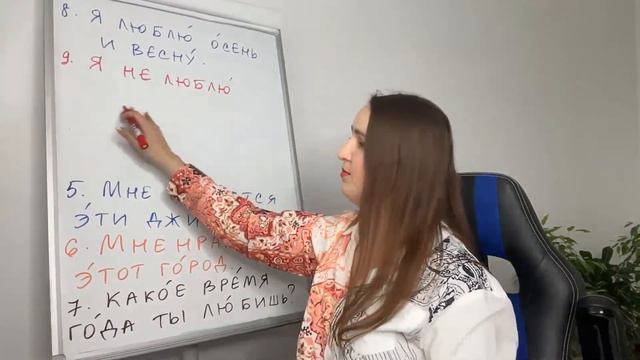 8. Я ЛЮБЛЮ́ О́СЕНЬ
И ВЕСНУ́.
9. Я НЕ ЛЮБЛЮ́
5. МНЕ
Э́ТИ
6. МНЕ
Э́ТОТ ГО́РОД.
7. КАКО́Е ВРЕ́МЯ
ГО́ДА ТЫ ЛЮ́БИШЬ?